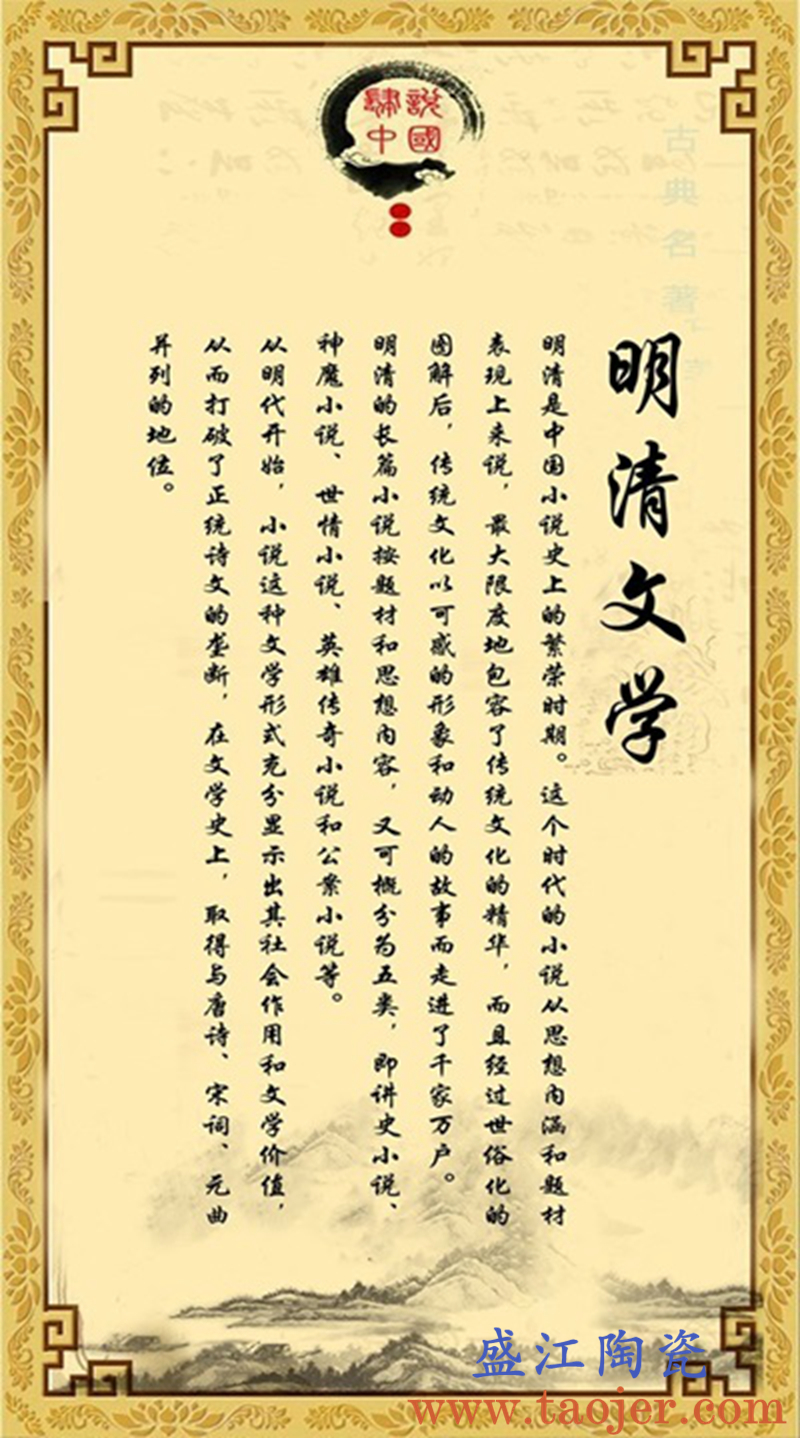 肆說
中國
古典名著
明清文学
明清是中国小说史上的繁荣时期。这个时代的小说从思想内涵和题材
表现上来说，最大限度地包容了传统文化的精华，而且经过世俗化的
图解后，传统文化以可感的形象和动人的故事而走进了千家万户。
明清的长篇小说按题材和思想内容，又可概分为五类，即讲史小说、
神魔小说、世情小说、英雄传奇小说和公案小说等。
从明代开始，小说这种文学形式充分显示出其社会作用和文学价值，
从而打破了正统诗文的垄断，在文学史上，取得与唐诗、宋词、元曲
并列的地位。
盛江陶瓷
www.taojer.com